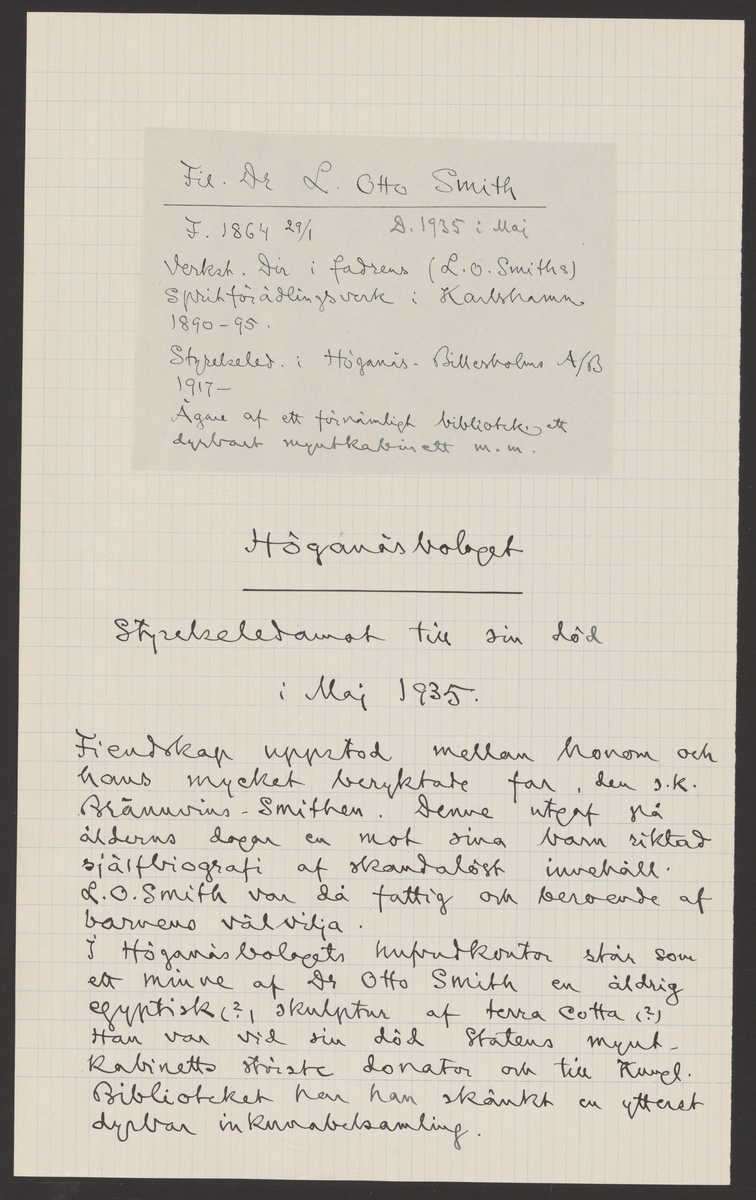 Fil. Dr L. Otto Smith
F. 1864 29/1 D. 1935 i Maj
Verkst. Dir i fadrens (L.O. Smiths)
Spritförädlingsverk i Karlshamn
1890-95.
Styrelseled. i Höganäs-Billesholms A/B
1917-
Ägare af ett förnämligt bibliotek, ett
dyrbart myntkabinett m.m.
Höganäsbolaget
Styrelseledamot till sin död
i Maj 1935.
Fiendskap uppstod mellan honom och
hans mycket beryktade far, den s.k.
Brännvins-Smithen. Denne utgaf på
ålderns dagar en mot sina barn riktad
själfbiografi af skandalöst innehåll.
L.O. Smith var då fattig och beroende af
barnens välvilja.
I Höganäsbolagets hufvudkontor står som
ett minne af Dr Otto Smith en åldrig
egyptisk (?) skulptur af terra cotta (?)
Han var vid sin död Statens mynt-
kabinetts störste donator och till Kungl.
Biblioteket har han skänkt en ytterst
dyrbar inkunabelsamling.